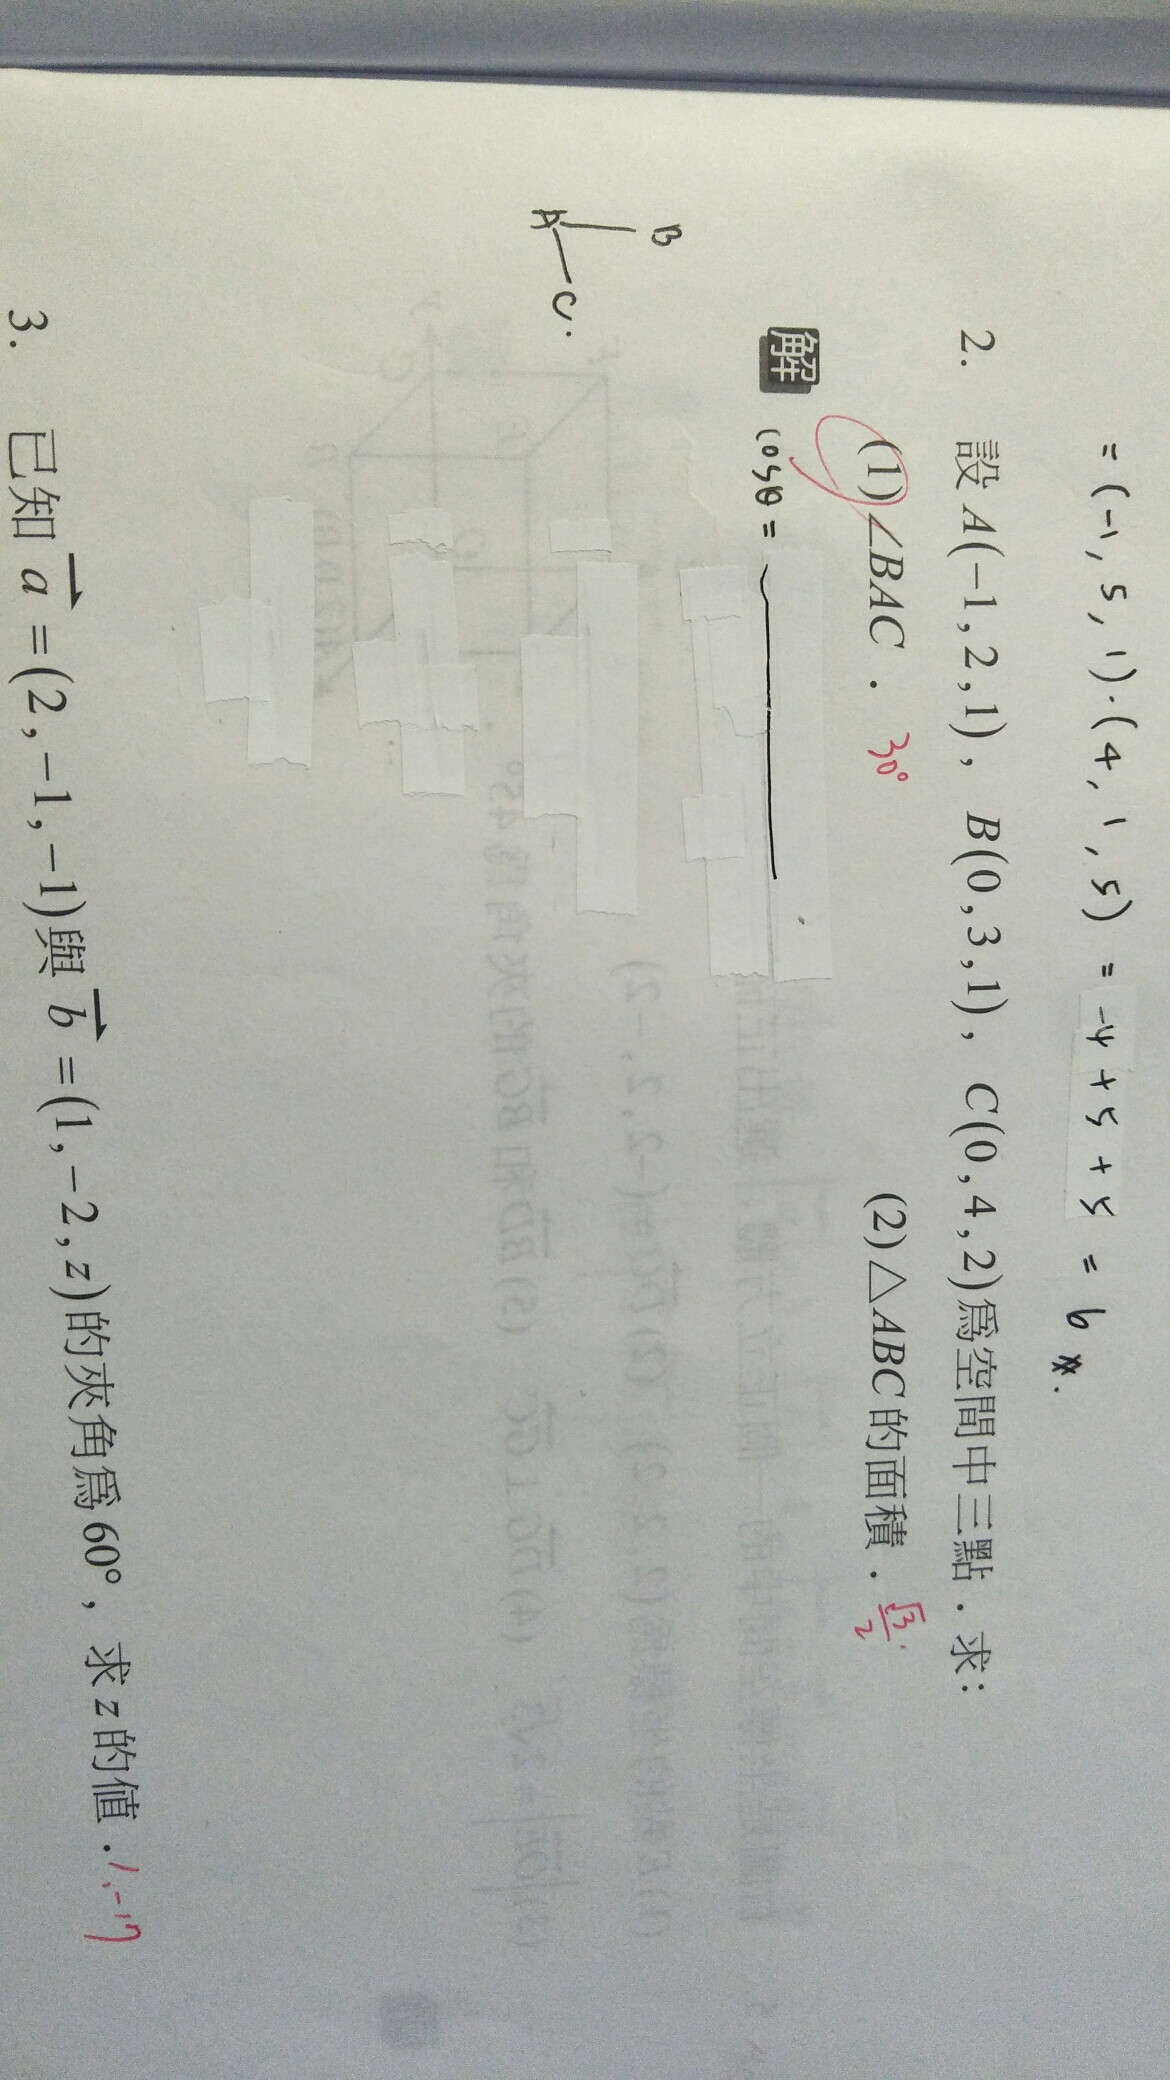 = (-1, 5, 1)·(4, 1, 5) = -4 + 5 + 5 = 6 #.
2. 設 A(-1,2,1), B(0,3,1), C(0,4,2)爲空間中三點.求:
(1)∠BAC. 30° (2)△ABC的面積. √3/2.
解 cosθ =
B
A
C
3. 已知 a⃗ =(2,-1,-1)與 b⃗ =(1,-2,z)的夾角爲60°, 求z的值. 1,-17